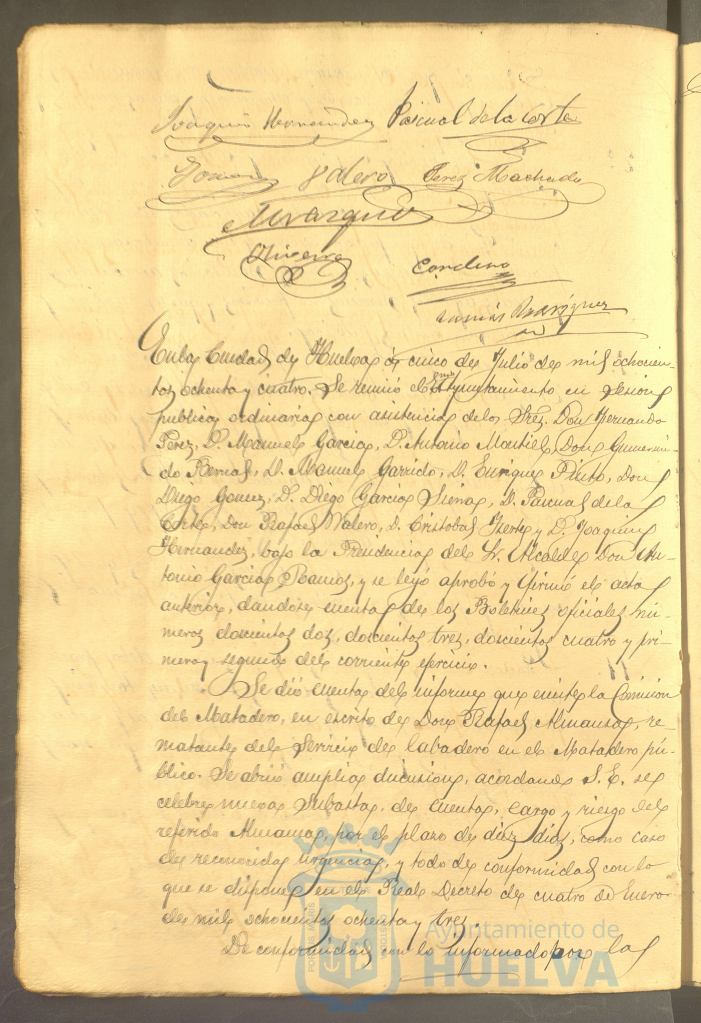 Joaquin Hernandez Pascual de la Corte
Valero Perez Machado
Cordero
En la Ciudad de Huelva á cinco de Julio de mil ochocien-
tos ochenta y cuatro. Se reunió el Ayuntamiento en sesion
publica ordinaria con asistencia de los Srez. Don Fernando
Perez, D. Manuel Garcia, D. Antonio Montiel, Don Gumersin-
do Bernal, D. Manuel Garrido, D. Enrique Prieto, Don
Diego Gomez, D. Diego Garcia Sierra, D. Pascual de la
Corte, Don Rafael Valero, D. Cristobal y D. Joaquin
Hernandez, bajo la Presidencia del Sr. Alcalde Don An-
tonio Garcia Ramos, y se leyó aprobó y firmó el acta
anterior, dandose cuenta de los Boletines oficiales nú-
meros doscientos dos, doscientos tres, doscientos cuatro y pri-
mero y segundo del corriente ejercicio.
Se dió cuenta del informe que emite la Comision
del Matadero, en escrito de Don Rafael Almansa, re-
matante del Servicio de labadero en el Matadero pú-
blico. Se abrió amplia discusion, acordando S. E. se
celebre nueva Subasta, de cuenta, cargo y riesgo del
referido Almansa, por el plazo de diez dias, como caso
de reconocida urgencia, y todo de conformidad con lo
que se dispone en el Real Decreto de cuatro de Enero
de mil ochocientos ochenta y tres.
De conformidad con lo informado por la
Ayuntamiento de
HUELVA